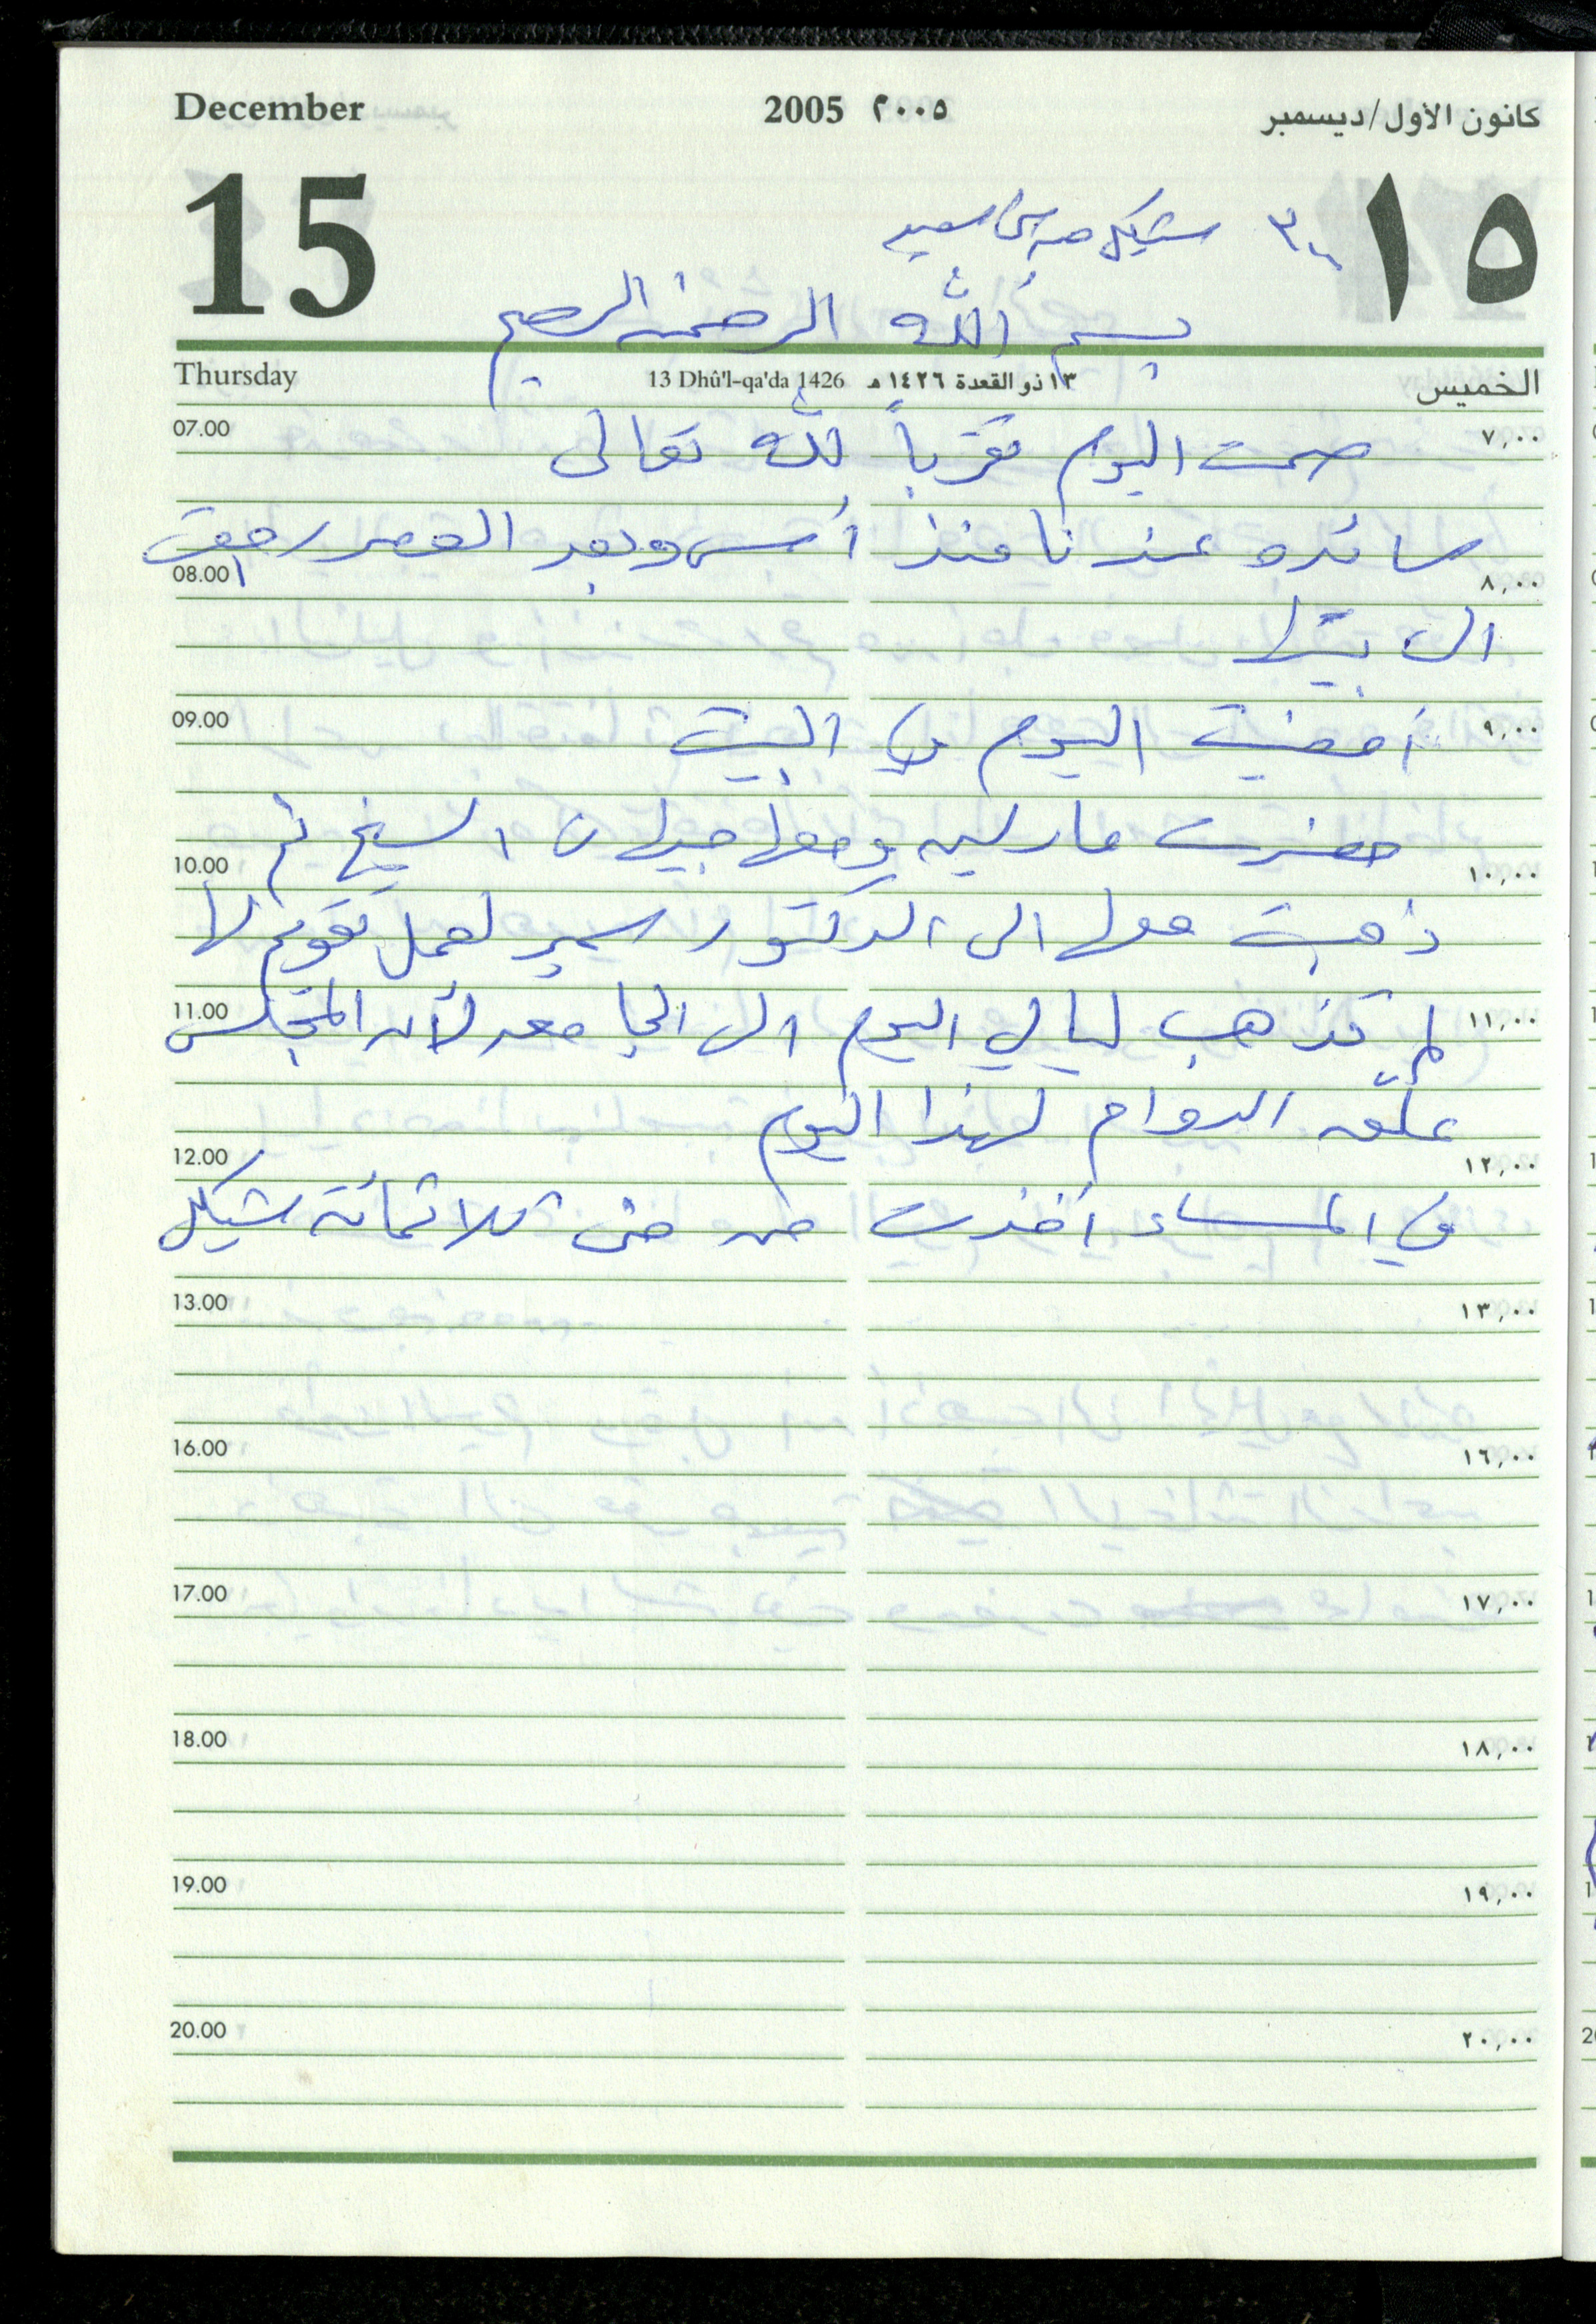 December 2005 ٢٠٠٥ كانون الأول/ديسمبر
15 ١٥
٣٠٠ شيكل من سعيد
بسم الله الرحمن الرحيم
Thursday 13 Dhû'l-qa'da 1426 ١٣ ذو القعدة ١٤٢٦ هـ الخميس
07.00 صمت اليوم تقرباً لله تعالى ٧,٠٠
سائده عندنا منذ أمس وبعد العصر رجعت
08.00 ٨,٠٠
الى بيتها
09.00 أمضيت اليوم في البيت ٩,٠٠
حضرت مارلين ومعها جيهان الشيخ ثم
10.00 ١٠,٠٠
ذهبت معها الى الدكتور سمير لعمل تقويم لها
11.00 لم تذهب ليالي اليوم الى الجامعه لأن المجلس ١١,٠٠
علّق الدوام لهذا اليوم
12.00 ١٢,٠٠
في المساء أخذت من منى ثلاثمائة شيكل
13.00 ١٣,٠٠
16.00 ١٦,٠٠
17.00 ١٧,٠٠
18.00 ١٨,٠٠
19.00 ١٩,٠٠
20.00 ٢٠,٠٠